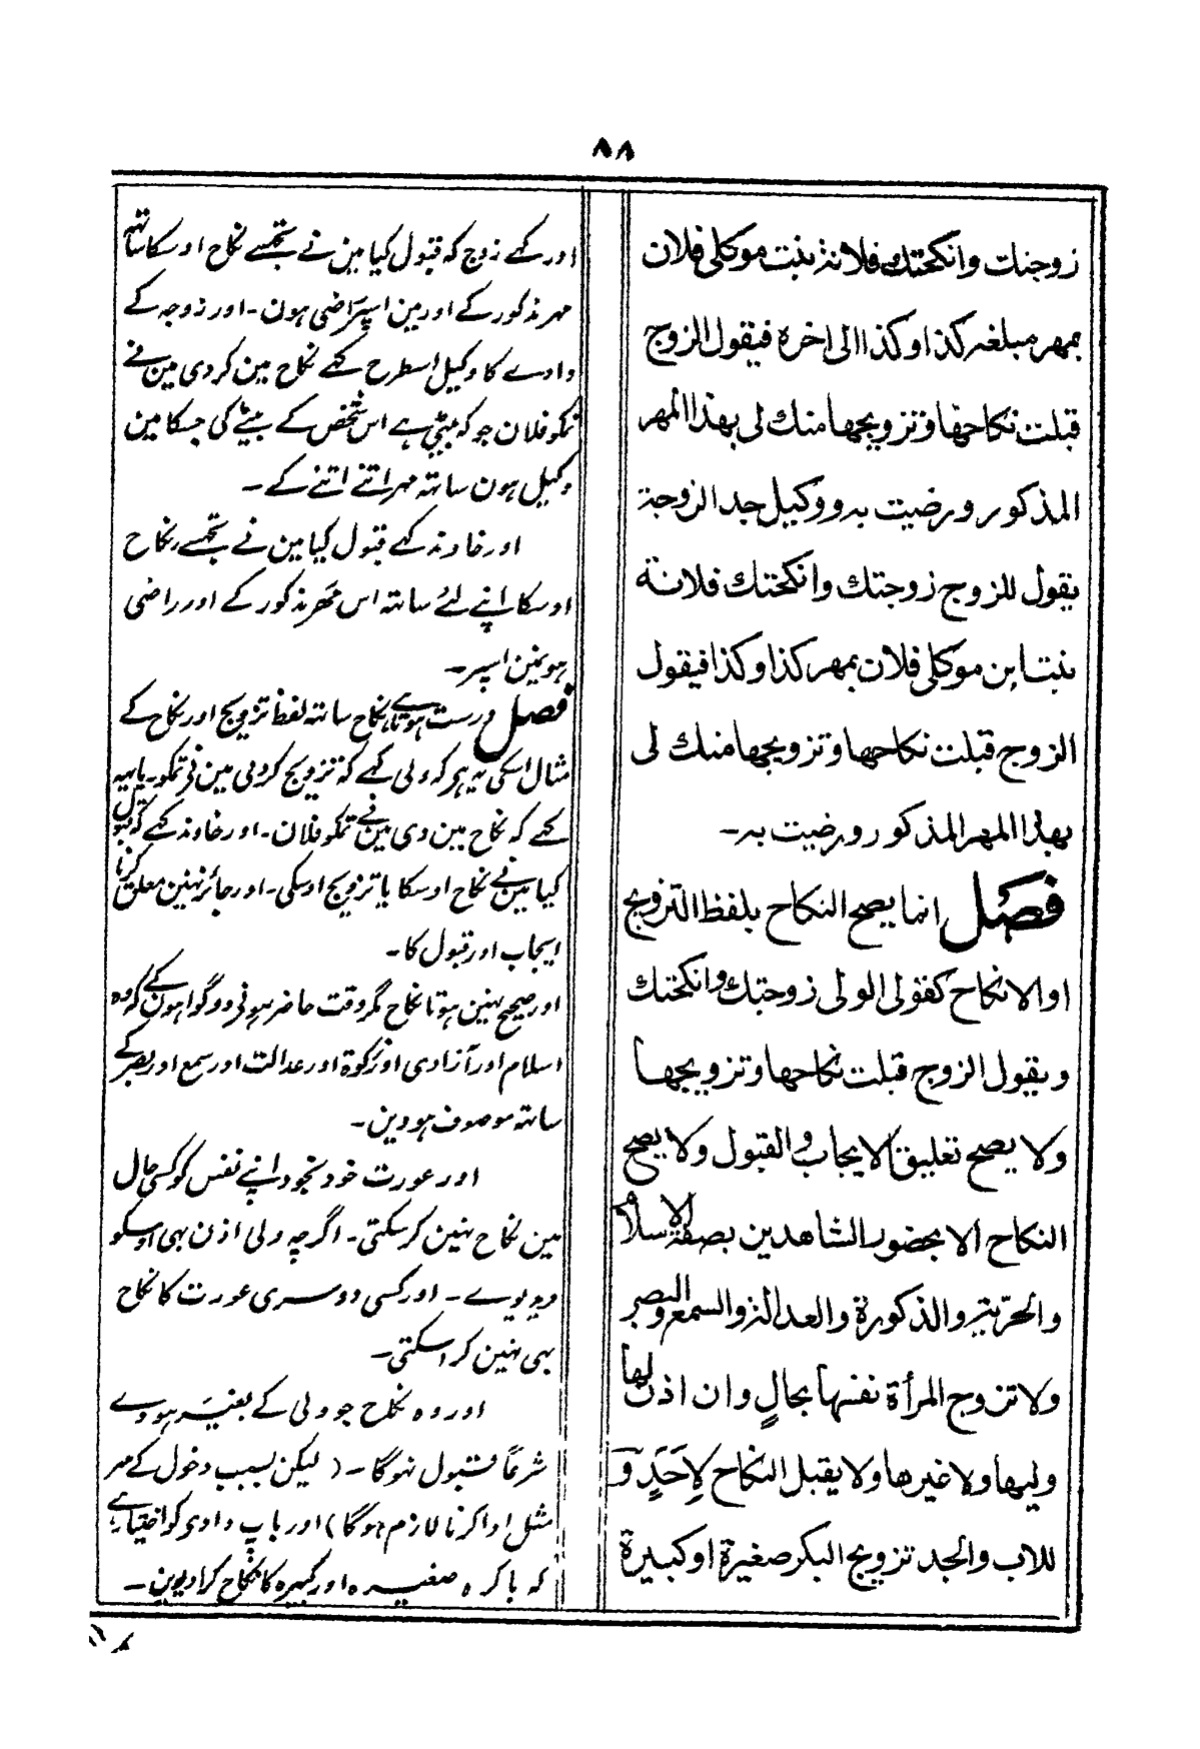 ۸۸
زوجتك وانكحتك فلانة بنت موكلی فلان
بمهر مبلغه كذا وكذا الی اخره فيقول الزوج
قبلت نكاحها وتزويجها منك لی بهذا المهر
المذكور ورضيت به ووكيل جد الزوجة
يقول للزوج زوجتك وانكحتك فلانة
بنت ابن موكلی فلان بمهر كذا وكذا فيقول
الزوج قبلت نكاحها وتزويجها منك لی
بهذا المهر المذكور ورضيت به۔
فصل انما يصح النكاح بلفظ التزويج
او الانكاح كقولی الولی زوجتك وانكحتك
ويقول الزوج قبلت نكاحها وتزويجها
ولا يصح تعليق الايجاب والقبول ولا يصح
النكاح الا بحضور الشاهدين بصفة الاسلام
والحرية والذكورة والعدالة والسمع والبصر
ولا تزوج المرأة نفسها بحالٍ وان اذن لها
وليها ولا غيرها ولا يقبل النكاح لِاَحَدٍ وَ
للاب والجد تزويج البكر صغيرة او كبيرة
اور کہے زوج کہ قبول کیا مین نے تجھسے نکاح اوسکا ساتھ
مہر مذکور کے اور مین اسپر راضی ہون۔ اور زوجہ کے
دادے کا وکیل اسطرح کہے نکاح مین کر دی مین نے
تمکو فلان جو کہ بیٹی ہے اس شخص کے بیٹے کی جسکا مین
وکیل ہون ساتہ مہر اتنے اتنے کے۔
اور خاوند کہے قبول کیا مین نے تجھسے نکاح
اوسکا اپنے لئے ساتہ اس مہر مذکور کے اور راضی
ہو مین اسپر۔
فصل درست ہوتا ہے نکاح ساتہ لفظ تزویج اور نکاح کے
مثال اسکی یہ ہر کہ ولی کہے کہ تزویج کر دی مین نی تمکو۔ یا یہ
کہے کہ نکاح مین دی مین نے تمکو فلان۔ اور خاوند کہے کہ قبول
کیا مین نے نکاح اوسکا یا تزویج اوسکی۔ اور جائز نہین معلق کرنا
ایجاب اور قبول کا۔
اور صحیح نہین ہوتا نکاح مگر وقت حاضر ہونی دو گواہون کے کہ وہ
اسلام اور آزادی اور ذکوۃ اور عدالت اور سمع اور بصر کے
ساتہ موصوف ہووین۔
اور عورت خود بخود اپنے نفس کو کسی حال
مین نکاح نہین کر سکتی۔ اگرچہ ولی اذن بھی اوسکو
دیدیوے۔ اور کسی دوسری عورت کا نکاح
بہی نہین کرا سکتی۔
اور وہ نکاح جو ولی کے بغیر ہووے
شرعاً قبول نہوگا۔ (لیکن بسبب دخول کے مہر
مثل ادا کرنا لازم ہوگا) اور باپ دادی کو اختیار ہے
کہ باکرہ صغیرہ اور کبیرہ کا نکاح کرا دیوین۔